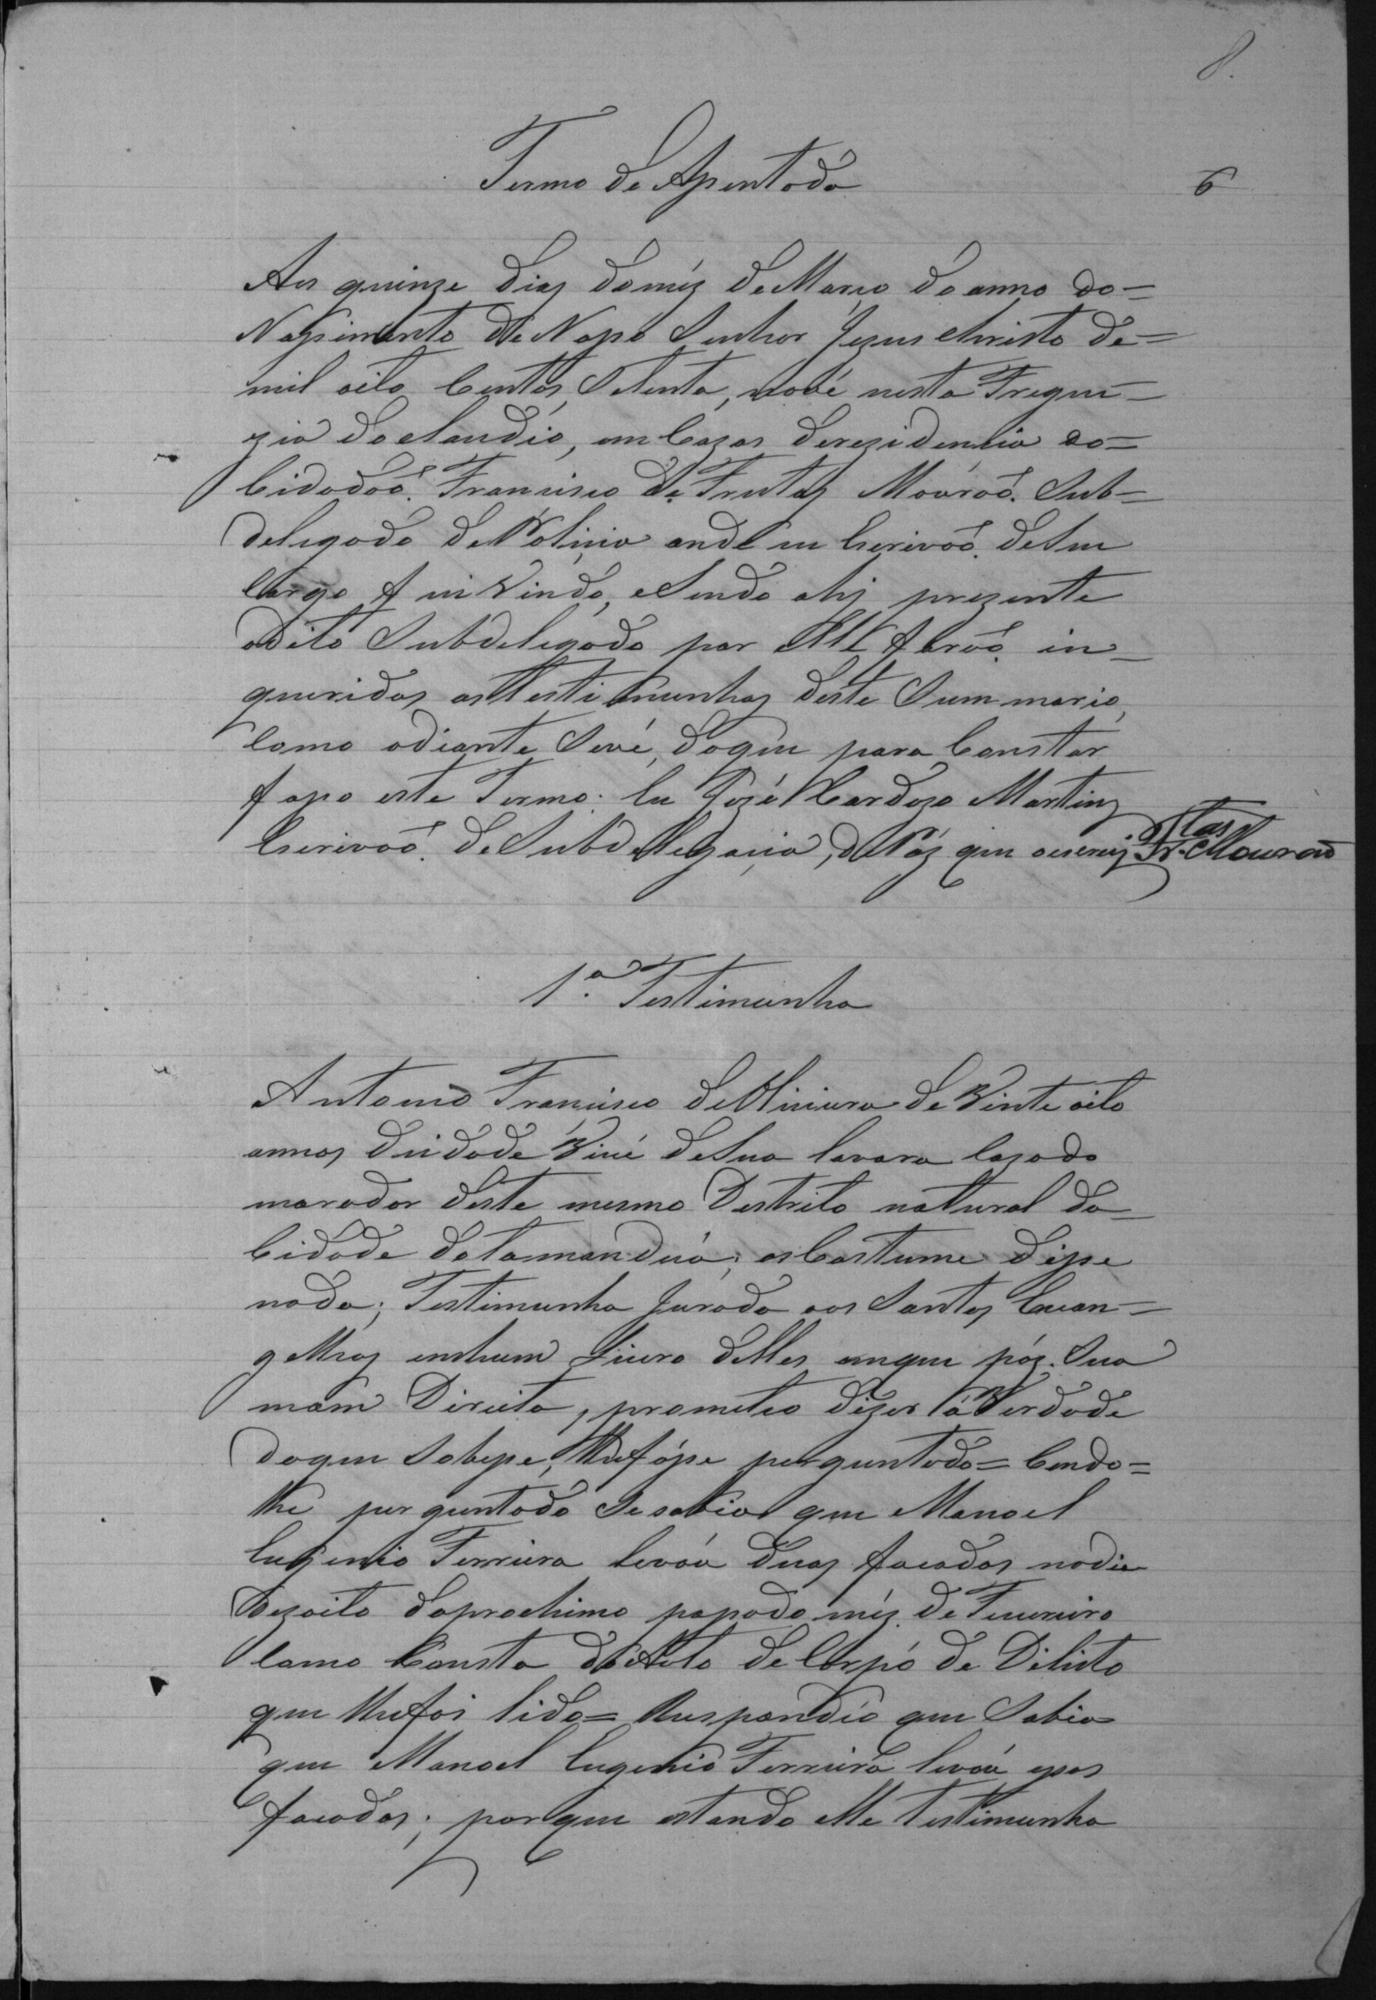 8.
Termo de Assentada
6
Aos quinze dias do mez de Março do anno do=
Nassimento de Nosso Senhor Jezus Christo de=
mil oito Centos, Setenta, nove nesta Fregue-
zia do Claudio, em Cazas derezidencia do=
Cidadaõ. Francisco de Freitas Mouraõ. Sub-
delegado de Policia onde eu Escrivaõ. de Seu
Cargo f ui vindo, e Sendo ahi prezente
odito Subdelegado por elle foraõ in-
queridas as Testimunhas deste Summario,
Como adiante Severá, doque para Constar
faço este Termo. Eu Jozé Cardozo Martins
Escrivaõ. de Subdellegacia, de Paz que oescrevy. Ftas Mouraõ
1.ª Testimunha
Antonio Francisco de Oliveira de Vinte oito
annos deidade Vive de Sua lavora Cazado
morador deste mesmo Destrito natural da
Cidade de Tamanduá; os Costume disse
nada; Testimunha Jurada aos Santos Evan-
gelhos emhum Livro delles emque pôs Sua
mam Direita, prometeo dizer a Verdade
doque Sobesse, lhefosse perguntado= Cendo=
lhe perguntado Sesabia que Manoel
Eugenio Ferreira levou duas facadas nodia
Dezoito doprochimo passado mêz de Fevereiro
Como Consta do Auto de Corpo de Delicto
que lhefoi lido= Respondeo que Sabia
que Manoel Eugenio Ferreira levou essas
facadas; porque estando elle Testimunha